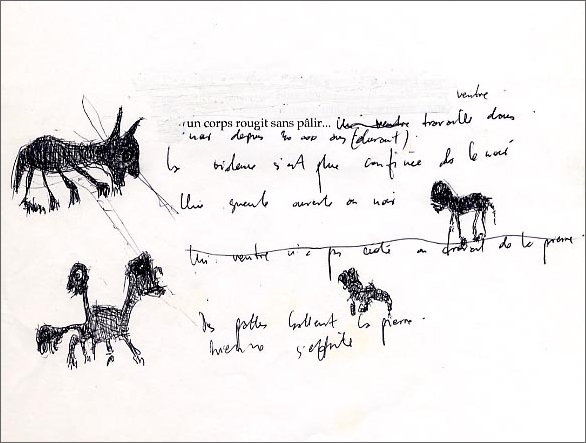 ventre
un corps rougit sans pâlir... travaille dans
noir depuis 30 000 ans (durant).
la violence s'est plus confinée de le noir
Une gueule ouverte au noir
Un ventre n'a pas cédé au travail de la pierre.
Des pattes la pierre.
s'effrite